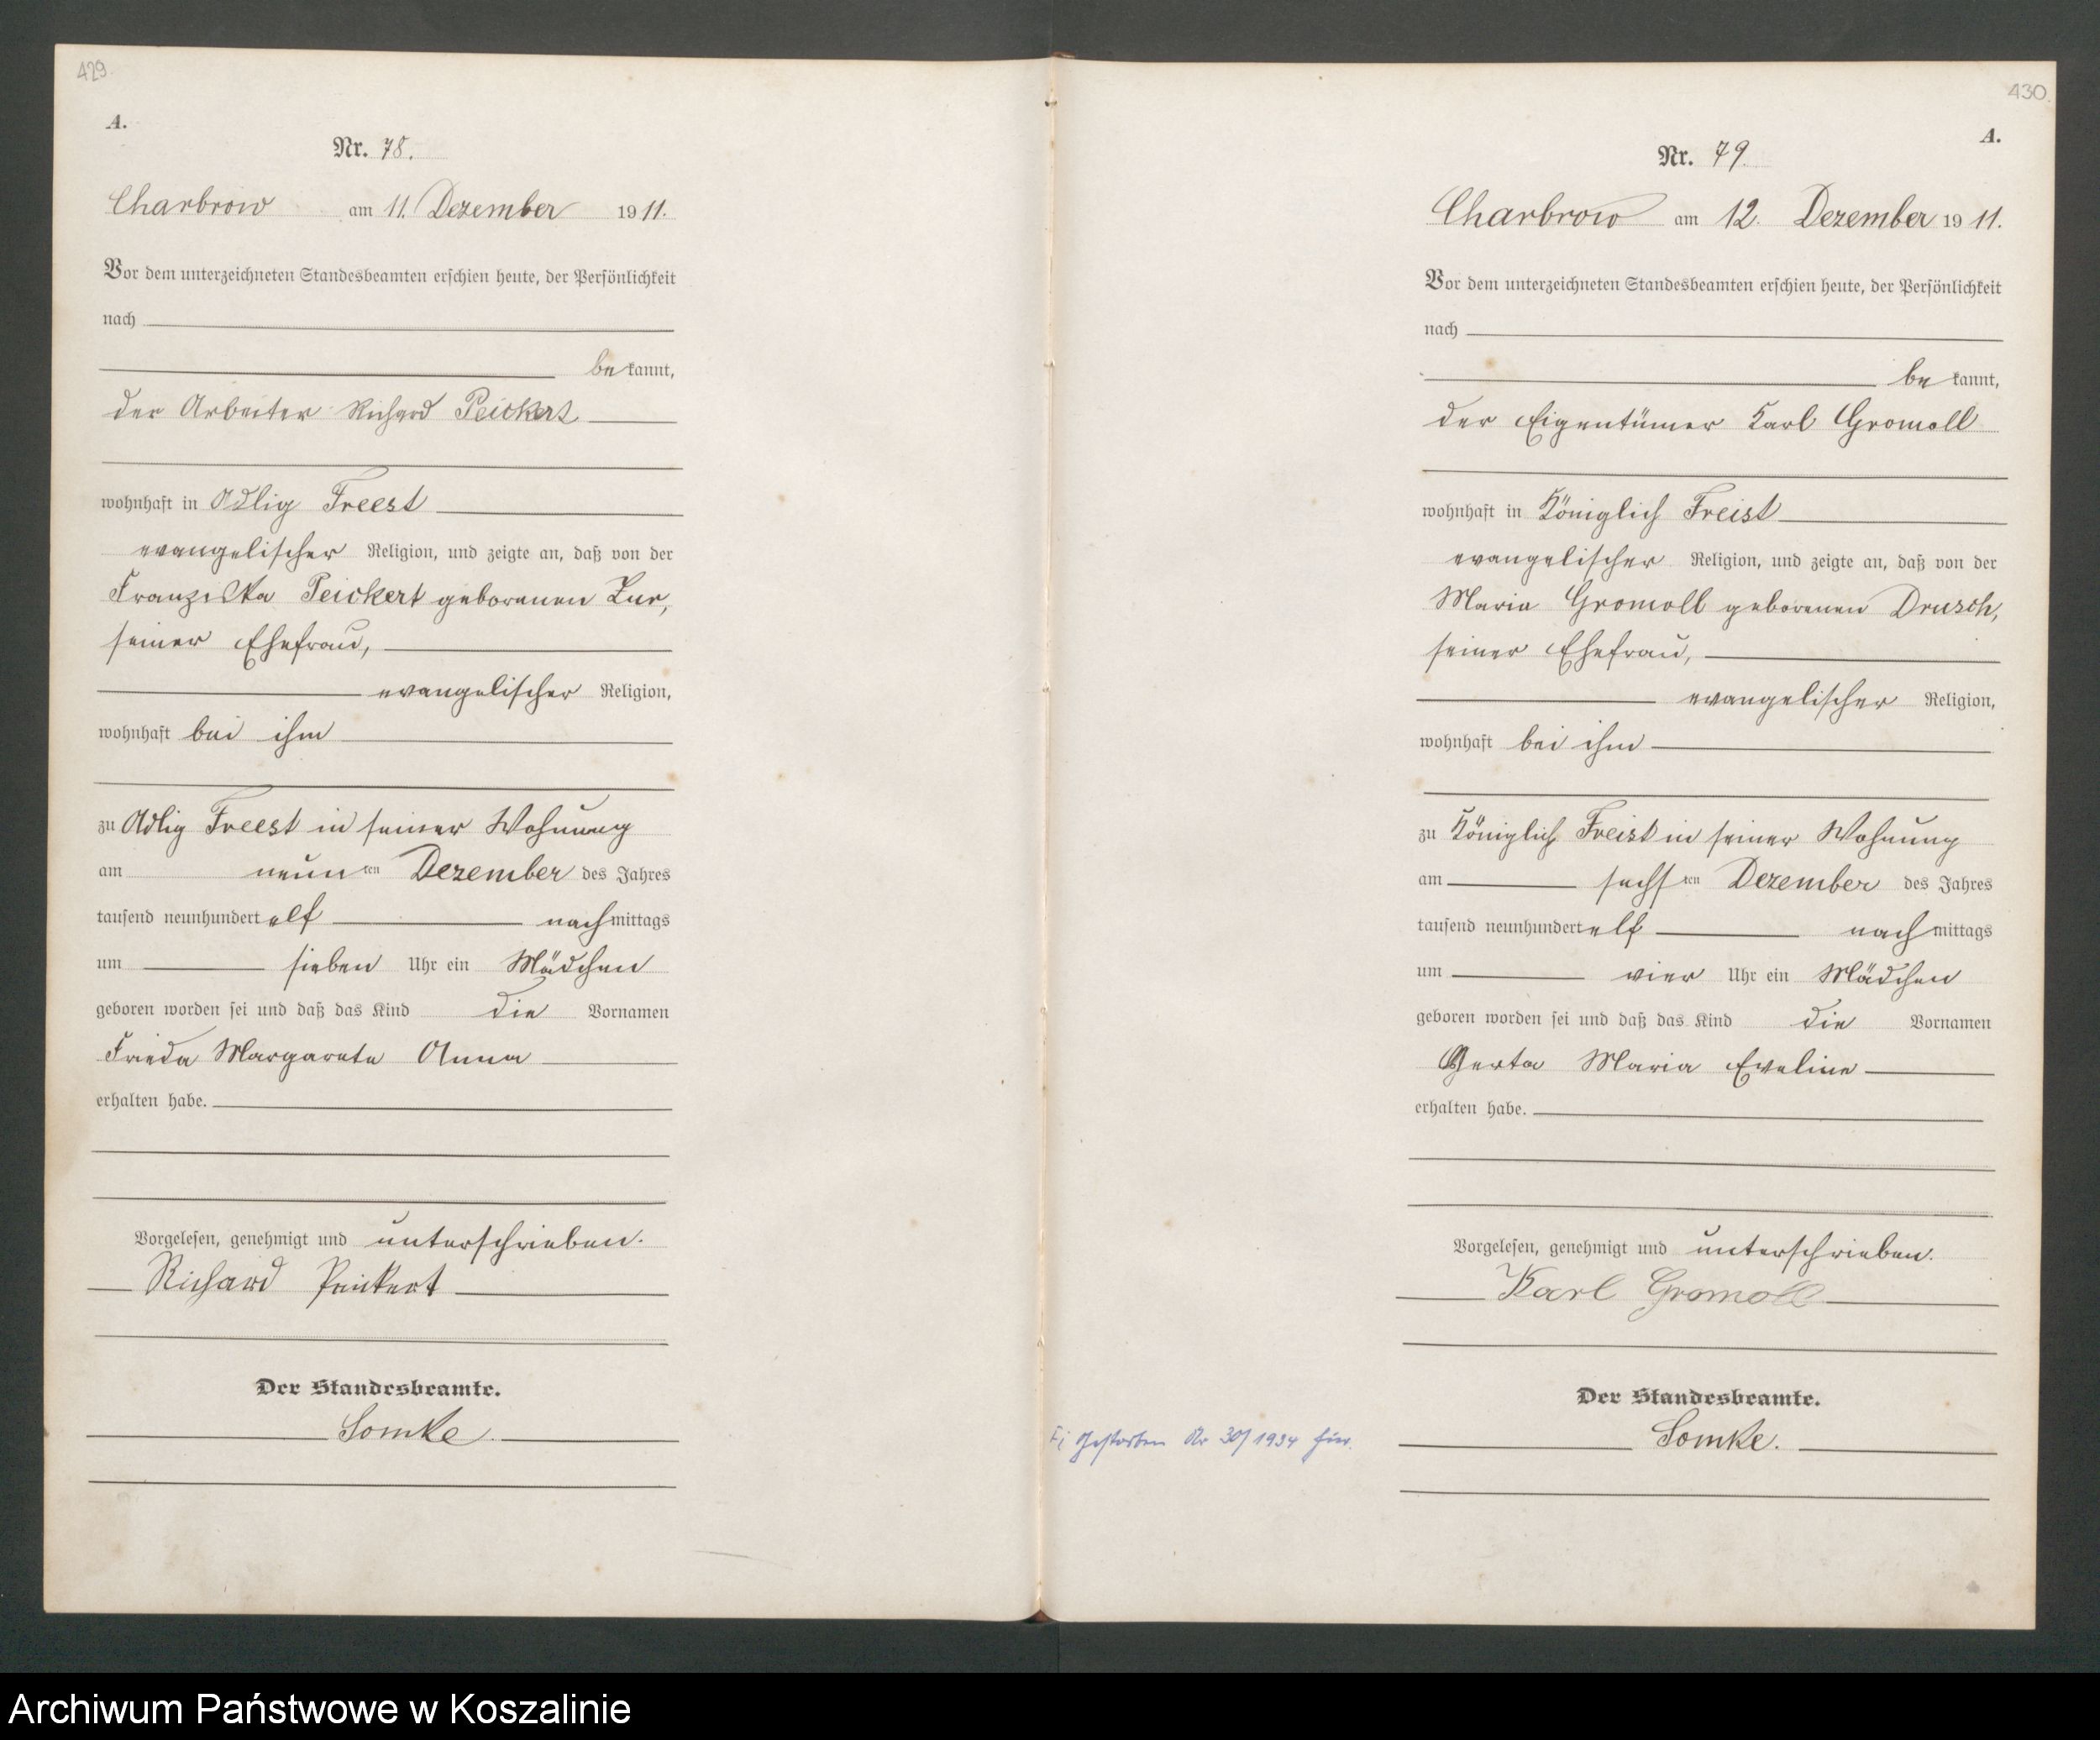 429
A.
Nr. 78.
Charbrow am 11. Dezember 1911.
Vor dem unterzeichneten Standesbeamten erschien heute, der Persönlichkeit
nach
be kannt,
der Arbeiter Richard Peickert
wohnhaft in Adlig Freest
evangelischer Religion, und zeigte an, daß von der
Franziska Peickert geborenen Zur,
seiner Ehefrau,
evangelischer Religion,
wohnhaft bei ihm
zu Adlig Freest in seiner Wohnung
am neun ten Dezember des Jahres
tausend neunhundert elf nach mittags
um sieben Uhr ein Mädchen
geboren worden sei und daß das Kind die Vornamen
Frieda Margarete Anna
erhalten habe.
Vorgelesen, genehmigt und unterschrieben.
Richard Peickert
Der Standesbeamte.
Somke.
430.
A.
Nr. 79.
Charbrow am 12. Dezember 1911.
Vor dem unterzeichneten Standesbeamten erschien heute, der Persönlichkeit
nach
be kannt,
der Eigentümer Karl Gromoll
wohnhaft in Königlich Freist
evangelischer Religion, und zeigte an, daß von der
Maria Gromoll geborenen Drusch,
seiner Ehefrau,
evangelischer Religion,
wohnhaft bei ihm
zu Königlich Freist in seiner Wohnung
am sechs ten Dezember des Jahres
tausend neunhundert elf nach mittags
um vier Uhr ein Mädchen
geboren worden sei und daß das Kind die Vornamen
Gerta Maria Eveline
erhalten habe.
Vorgelesen, genehmigt und unterschrieben.
Karl Gromoll
Der Standesbeamte.
Somke.
Gestorben Nr 30/1934 hier.
Archiwum Państwowe w Koszalinie